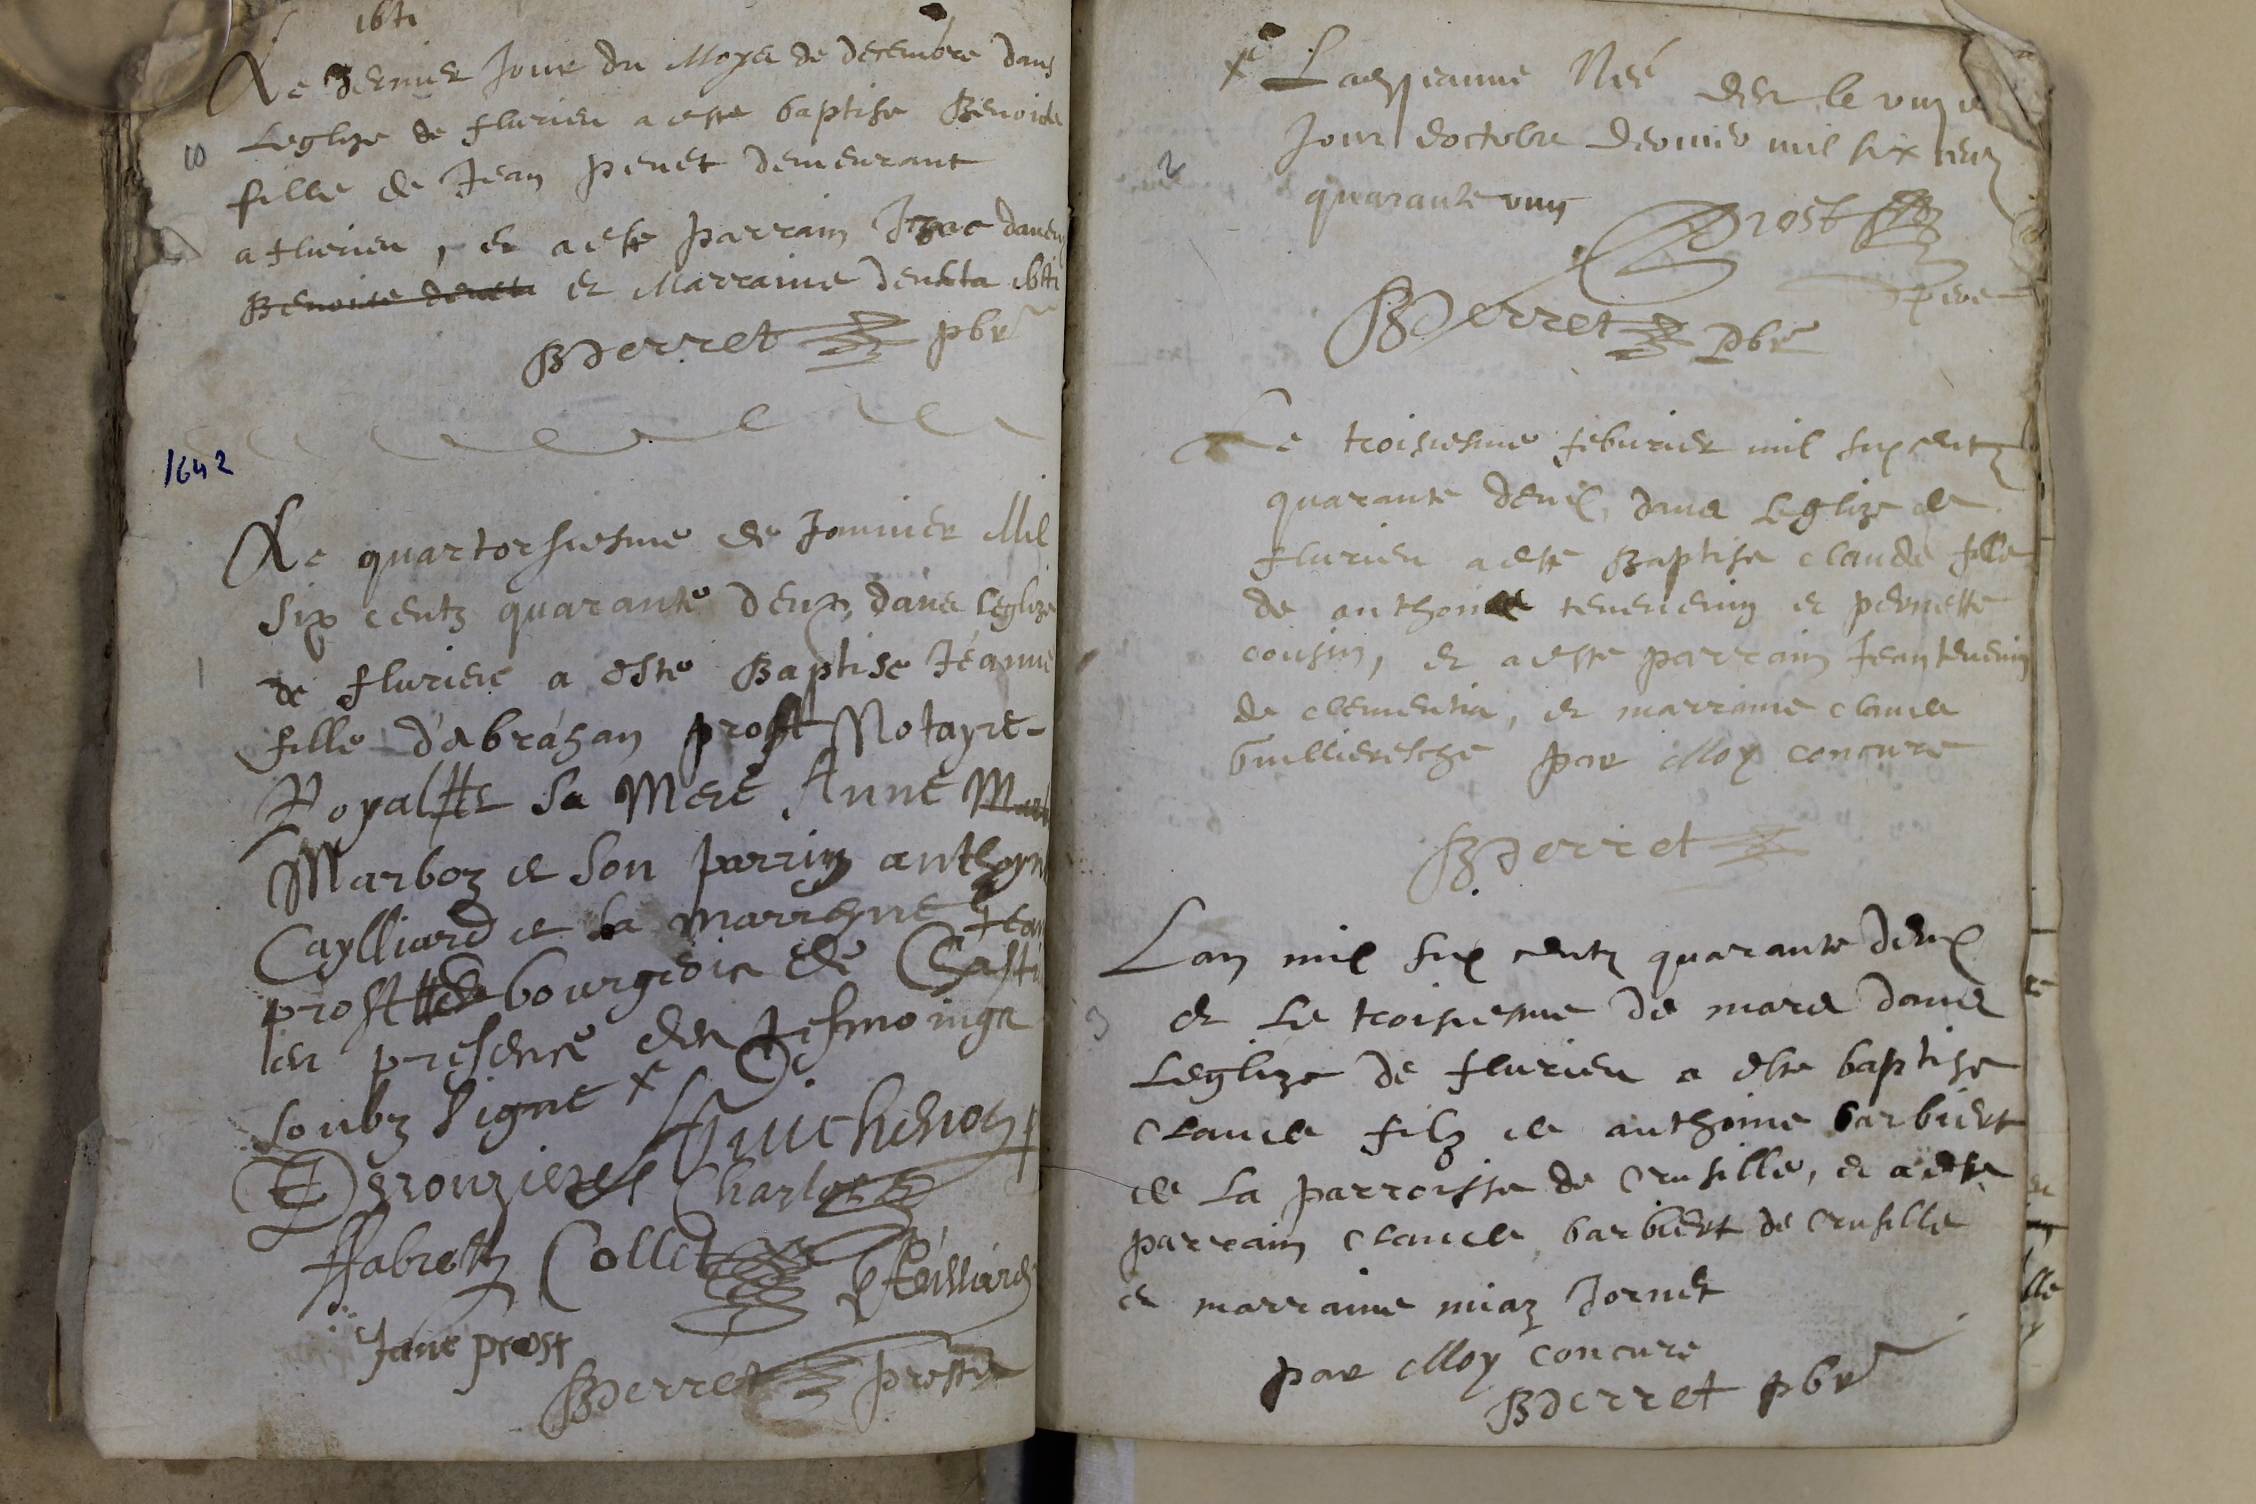 Le dernier Jour du Moys de decembre dans
Leglize de flurieu a este baptise Benoiste
fille de Jean penet demeurant
a flurieu, et a este parrain
Benoiste et Marraine
BDerret pbr
1642
Le quartorsiesme de Janvier Mil
Six centz quarante deux, dans leglize
de flurieu a este Baptise Jeanne
fille d'abrahan prost Notayre
Royal et sa Mere Anne
Marboz et son parrin anthoyne
Caylliard et sa marrine Jean
prost bourgeois de Chasti
en presence des tesmoings
soubz signe x
Guichenon
Derouzieres Charlos
ffabrot Collet
Jane prost
BDerret prestre
x Ladz jeanne Neé des le unze
Jour doctobre dernier mil six centz
quarante ung
Prost
pere
BDerret Pbr
Le troisiesme feburier mil six centz
quarante deux, dans Leglize de
flurieu a este Baptise claude fille
de anthoine tevenin et pernette
cousin, et a este parrain Jean tevenin
de clementia, et marraine claude
par Moy concure
BDerret
Lan mil six centz quarante deux
et Le troisiesme de mars dans
Leglize de flurieu a este baptise
Claude filz de anthoine barbiert
de La parroisse de Crusille, et a este
parrain Claude barbiert de Crusille
et marraine miaz Jornet
par Moy concure
BDerret pbr